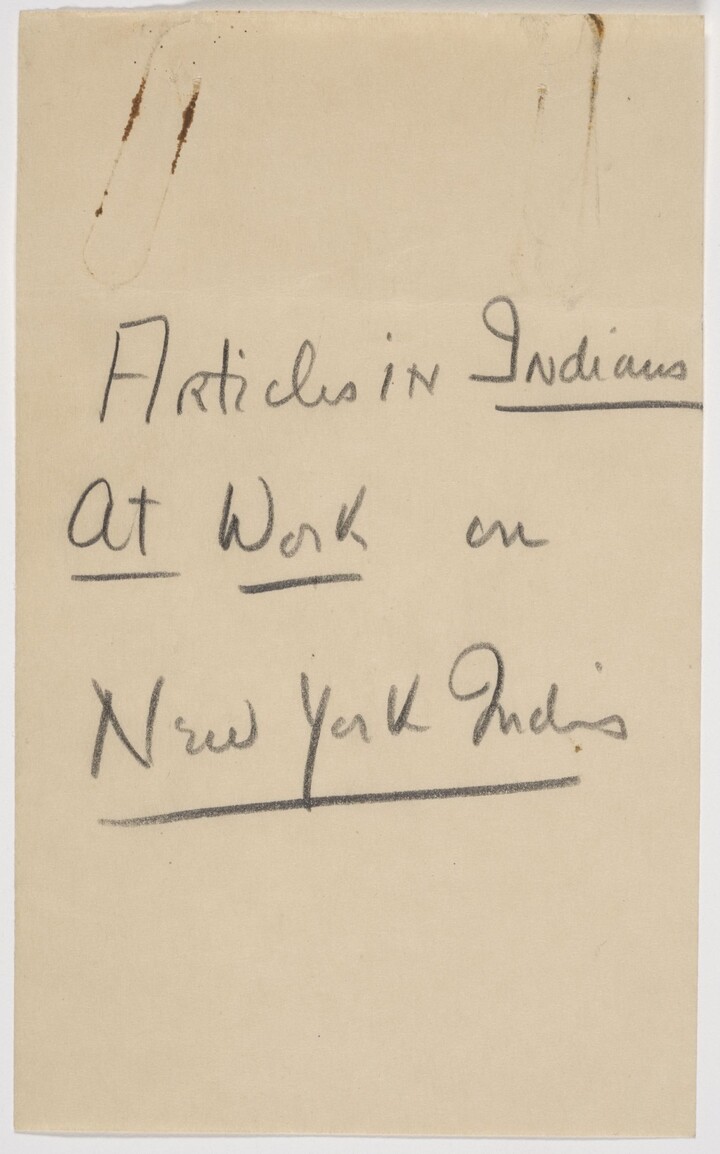 Articles in Indians
At Work on
New York Indins